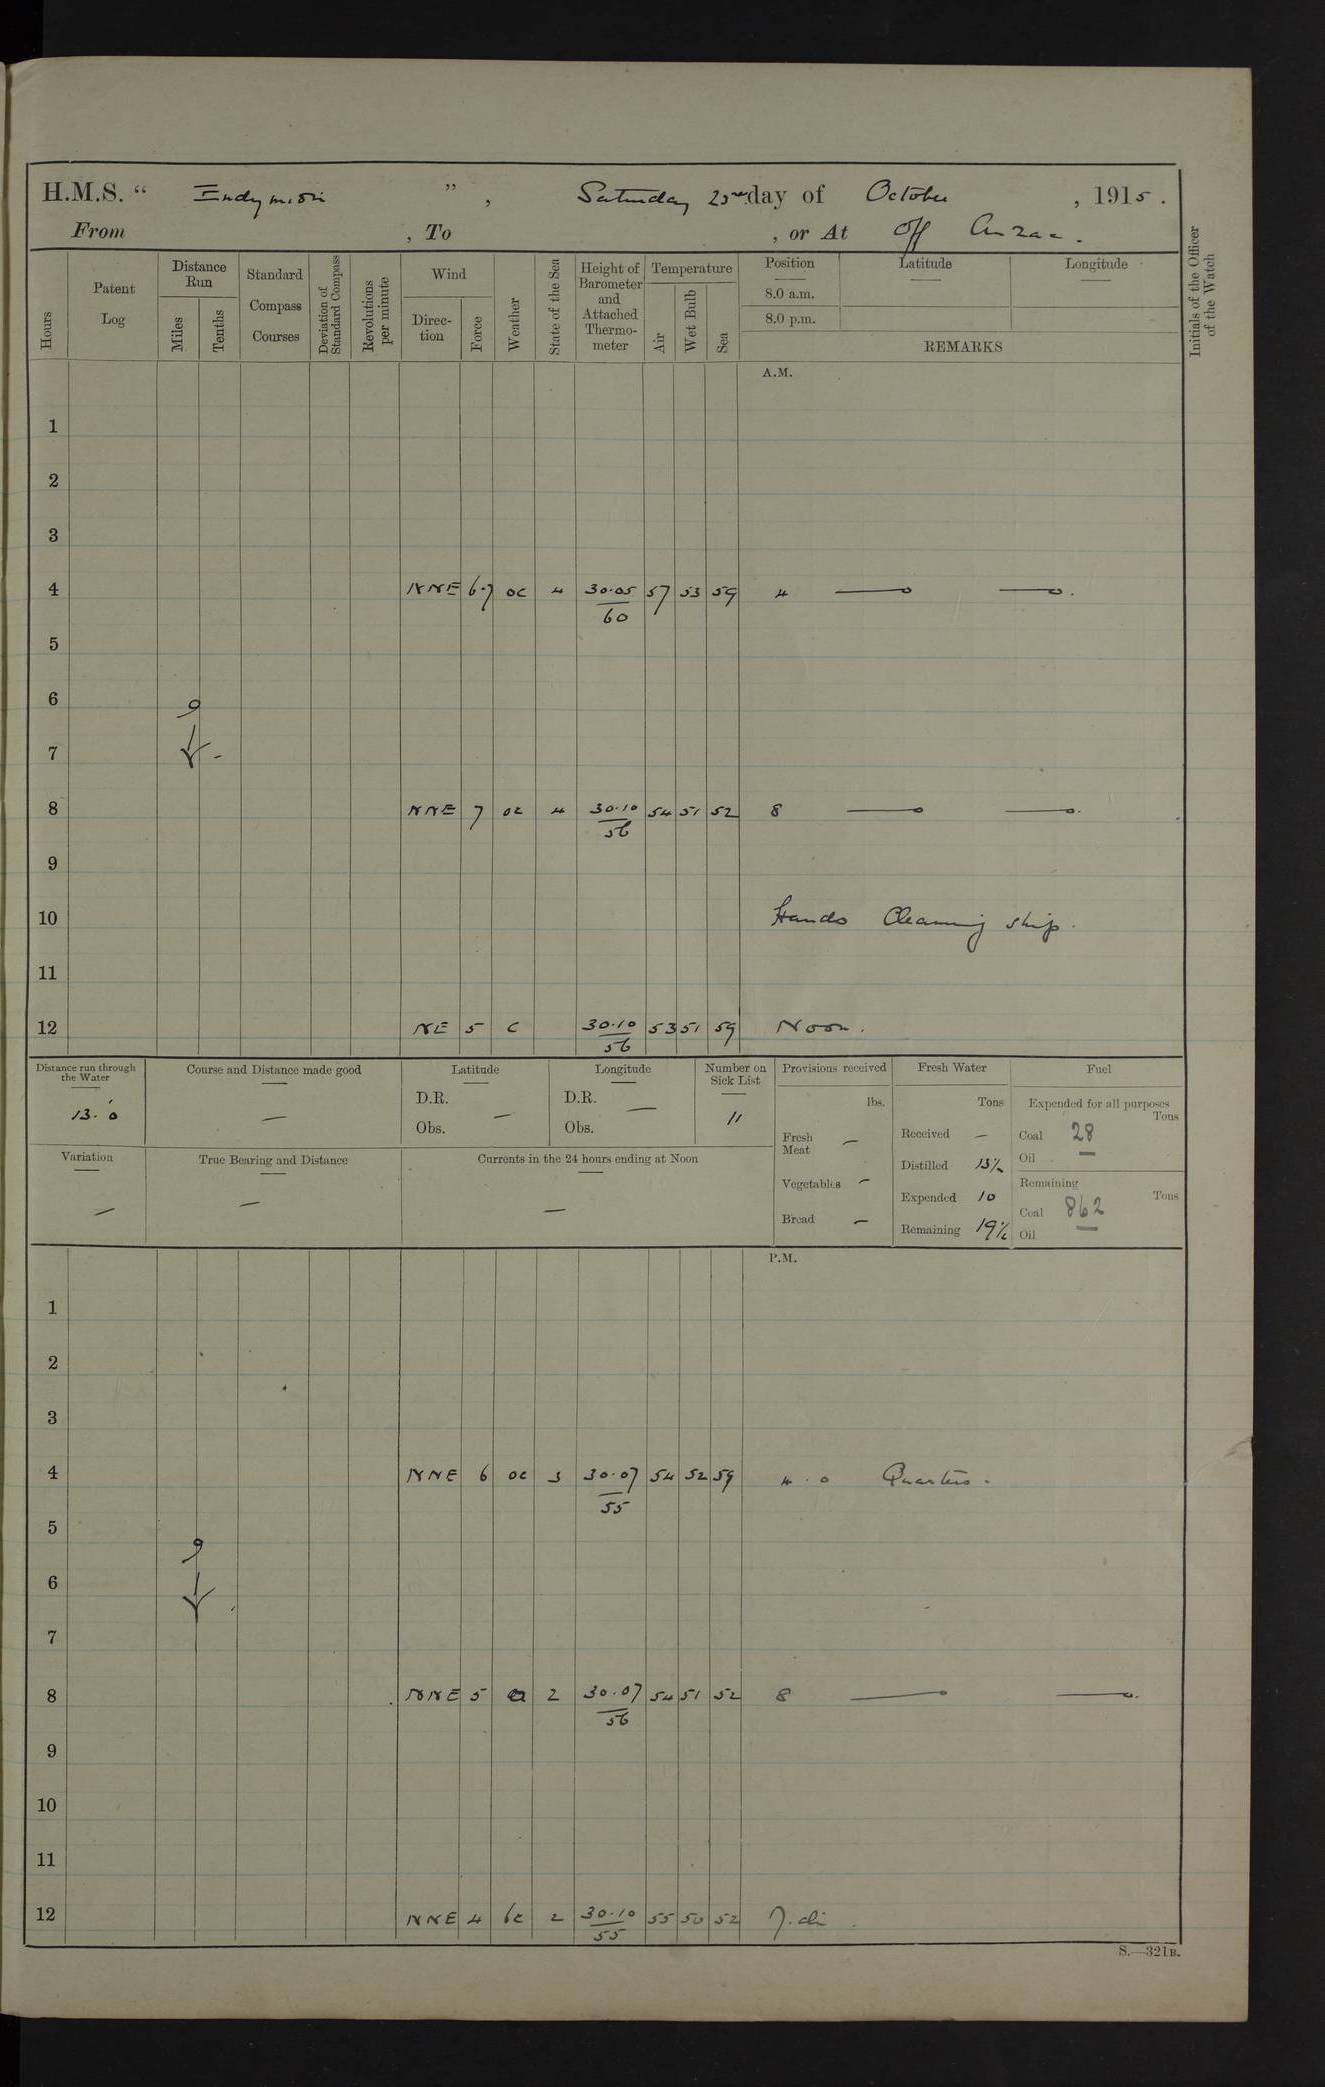 H.M.S. “ Endymion ”, Saturday 23rd day of October, 1915.
From , To , or At Off Anzac.
Hours
Patent Log
Distance Run
Miles
Tenths
Standard Compass Courses
Deviation of Standard Compass
Revolutions per minute
Wind
Direction
Force
Weather
State of the Sea
Height of Barometer and Attached Thermometer
Temperature
Air
Wet Bulb
Sea
Position
8.0 a.m.
8.0 p.m.
Latitude
Longitude
REMARKS
Initials of the Officer of the Watch
A.M.
1
2
3
4 NNE 6.7 oc 4 30.05/60 57 53 59 4 — — .
5
6
7
8 NNE 7 oc 4 30.10/56 54 51 52 8 — — .
9
10 Hands Cleaning ship.
11
12 NE 5 c 30.10/56 53 51 59 Noon.
Distance run through the Water
13.0
Course and Distance made good
—
Latitude
D.R. —
Obs.
Longitude
D.R. —
Obs.
Number on Sick List
11
Provisions received
lbs.
Fresh Meat —
Vegetables —
Bread —
Fresh Water
Tons
Received —
Distilled 13½
Expended 10
Remaining 19½
Fuel
Expended for all purposes
Tons
Coal 28
Oil —
Remaining
Tons
Coal 862
Oil —
Variation
—
True Bearing and Distance
—
Currents in the 24 hours ending at Noon
—
P.M.
1
2
3
4 NNE 6 oc 3 30.07/55 54 52 59 4.0 Quarters.
5
6
7
8 NNE 5 2 30.07/56 54 51 52 8 — — .
9
10
11
12 NNE 4 bc 2 30.10/55 55 50 52
S.—321B.